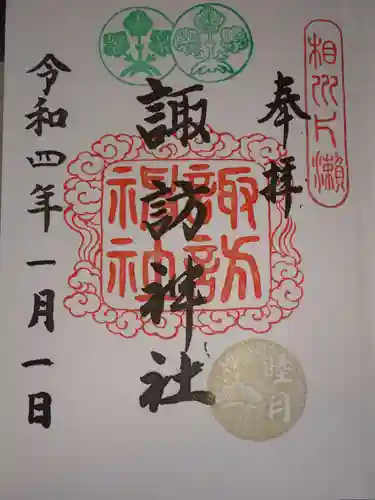 相州片瀬
奉拝
諏訪神社
諏訪
神社
睦月
令和四年一月一日